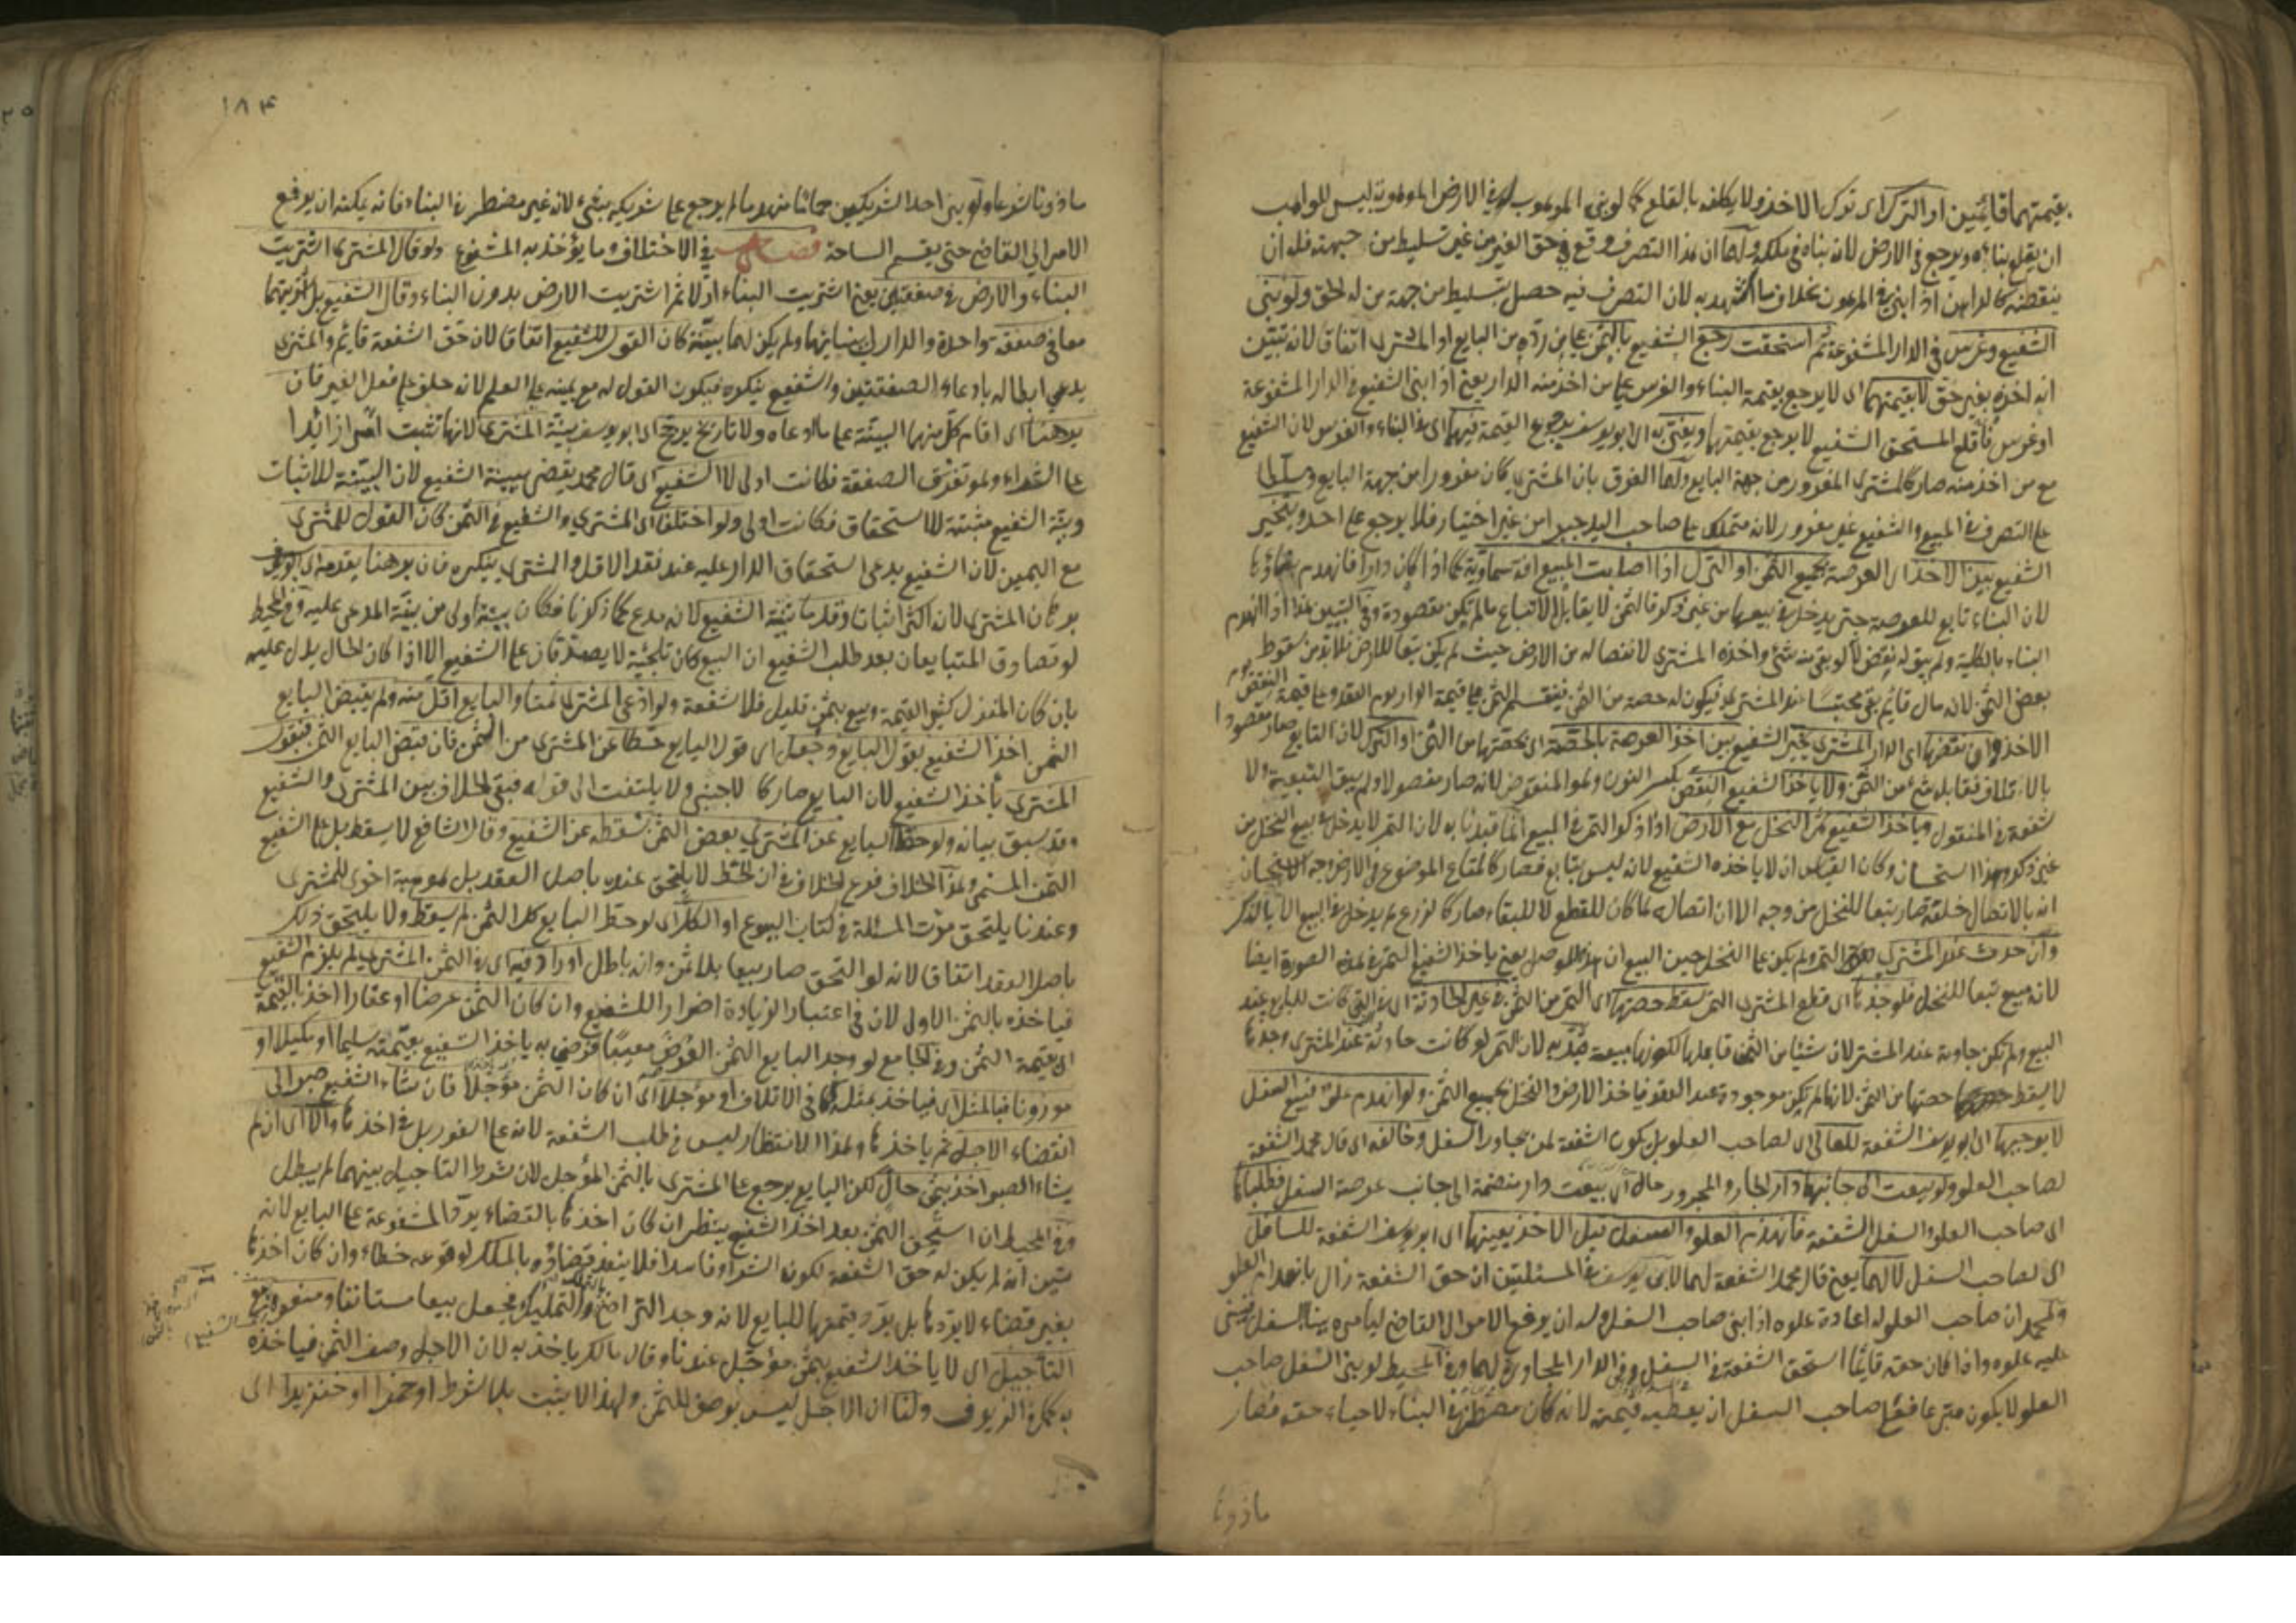 بقيمتهما قائمين او الترك اى ترك الاخذ ولا يكلفه بالقلع كما لو بنى الموهوب له فى الارض الموهوبة ليس للواهب
ان يقلع بناءه ويرجع فى الارض لانه بناه فى ملكه ولهما ان هذا التصرف وقع فى حق الغير من غير تسليط من جهته فله ان
ينقضه كالراهن اذا بنى فى المرهون بخلاف ما لان التصرف فيه حصل بتسليط من جهة من له الحق ولو بنى
الشفيع وغرس فى الدار المشفوعة ثم استحقت رجع الشفيع بالثمن على من رده من البايع او المشترى اتفاقا لانه تبين
انه اخذه بغير حق لا بقيمتهما اى لا يرجع بقيمة البناء والغرس على من اخذ منه الدار يعنى اذا بنى الشفيع فى الدار المشفوعة
او غرس فاقلع المستحق الشفيع لا يرجع بقيمتهما ويفتى به ابو يوسف برجوع القيمة فيهما اى فى البناء والغرس لان الشفيع
مع من اخذ منه صار كالمشترى المغرور من جهة البايع ولهما الفرق بان المشترى كان مغرورا من جهة البايع ومسلطا
على التصرف فى المبيع والشفيع غير مغرور لانه متملك على صاحب اليد جبرا من غير اختيار فلا يرجع على احد ويتخير
الشفيع بين اخذ العرصة بجميع الثمن او الترك اذا اصابت المبيع آفة سماوية كما اذا كان دارا فانهدم بناؤها
لان البناء تابع للعرصة حتى يدخل فى بيعها من غير ذكر فالثمن لا يقابل الاتباع ما لم يكن مقصودة وفى التبيين هذا اذا انهدم
البناء بالكلية ولم يبق له نقض لو بقى منه شئ واخذه المشترى لانفصاله من الارض حيث لم يكن تبعا للارض فلا بد من سقوط
بعض الثمن لانه مال قائم بقى محتبسا عند المشترى فيكون له حصة من الثمن فيقسم الثمن على قيمة الدار يوم العقد وعلى قيمة النقض يوم
الاخذ وان نقضها اى الدار المشترى يخير الشفيع بين اخذ العرصة بالحصة اى بحصتها من الثمن او الترك لان التابع صار مقصودا
بالاتلاف فقابله شئ من الثمن ولا ياخذ الشفيع النقض بكسر النون وهو المنقوض لانه صار مفصولا ولم يبق التبعية ولا
شفعة فى المنقول وياخذ الشفيع ثمر النخل مع الارض اذا ذكر الثمر فى المبيع انما قيدنا به لان الثمر لا يدخل فى بيع النخل من
غير ذكر وهذا استحسان وكان القياس ان لا ياخذه الشفيع لانه ليس بتابع فصار كالمتاع الموضوع فى الارض وجه الاستحسان
انه بالاتصال خلقة صار تبعا للنخل من وجه الا ان اتصاله لما كان للقطع لا للبقاء صار كالزرع لم يدخل فى البيع الا بالذكر
وان حدث عند المشترى الثمر ولم يكن على النخل حين البيع ان يعنى ياخذ الشفيع الثمر فى هذه الصورة ايضا
لانه مبيع تبعا للنخل فلو جذها اى قطع المشترى الثمر يسقط حصتها اى الثمر من الثمن فى غير الحادثة اى فى التى كانت للبايع عند
البيع ولم تكن حادثة عند المشترى لان شيئا من الثمن قابلها لكونها مبيعة قيد به لان الثمر لو كانت حادثة عند المشترى وجذها
لا يسقط حصتها من الثمن لانها لم يكن موجودة عند العقد فياخذ الارض والنخل بجميع الثمن ولو انهدم علو فبيع السفل
لا يوجبها اى ابو يوسف الشفعة للعالى اى لصاحب العلو بل يكون الشفعة لمن يجاور السفل وخالفه اى قال محمد الشفعة
لصاحب العلو ولو بيعت الى جانبها دار الجار والمجرور حال اى بيعت دار منضمة الى جانب عرصة السفل فطلباها
اى صاحب العلو والسفل الشفعة فانهدم العلو والسفل قبل الاخذ يعينها اى ابو يوسف الشفعة للسافل
اى لصاحب السفل لا لهما يعنى قال محمد الشفعة لهما لابى يوسف فى المسئلتين ان حق الشفعة زال بانهدام العلو
ولمحمد ان صاحب العلو له اعادة علوه اذا بنى صاحب السفل وله ان يرفع الامر الى القاضى ليامره ببناء السفل فيبنى
عليه علوه واذا كان حقه قائما استحق الشفعة فى السفل وفى الدار المجاورة لهما وفى المحيط لو بنى السفل صاحب
العلو لا يكون متبرعا فعلى صاحب السفل ان يعطيه قيمته لانه كان مضطرا فى البناء لاحياء حقه فصار
ماذونا
١٨٤
ماذونا شرعا ولو بنى احد الشريكين حماما منهدما لم يرجع على شريكه بشئ لانه غير مضطر فى البناء فانه يمكنه ان يرفع
الامر الى القاضى حتى يقسم الساحة فصل فى الاختلاف وما يؤخذ به المشفوع ولو قال المشترى اشتريت
البناء والارض فى صفقتين يعنى اشتريت البناء اولا ثم اشتريت الارض بدون البناء وقال الشفيع بل اشتريتهما
معا فى صفقة واحدة والدار ببنائها ولم يكن لهما بينة كان القول للشفيع اتفاقا لان حق الشفعة قائم والمشترى
يدعى ابطاله بادعاء الصفقتين والشفيع ينكره فيكون القول له مع يمينه على العلم لانه حلف على فعل الغير فان
برهنا اى اقام كل منهما البينة على ما ادعاه ولا تاريخ يرجح اى ابو يوسف بينة المشترى لانها تثبت امرا زائدا
على الشراء وهو تفرق الصفقة فكانت اولى لا الشفيع اى قال محمد يقضى ببينة الشفيع لان البينة للاثبات
وبينة الشفيع مثبتة للاستحقاق فكانت اولى ولو اختلفا اى المشترى والشفيع فى الثمن كان القول للمشترى
مع اليمين لان الشفيع يدعى استحقاق الدار عليه عند نقد الاقل والمشترى ينكره فان برهنا يقدم اى ابو يوسف
برهان المشترى لانه اكثر اثباتا وقدما بينة الشفيع لانه مدع كما ذكرنا فكان بينته اولى من بينة المدعى عليه وفى المحيط
لو تصادق المتبايعان بعد طلب الشفيع ان البيع كان تلجئة لا يصدقان على الشفيع الا اذا كان الحال يدل عليه
بان كان المنزل كثير القيمة وبيع بثمن قليل فلا شفعة ولو ادعى المشترى ثمنا والبايع اقل منه ولم يقبض البايع
الثمن اخذ الشفيع بقول البايع وجعل اى قول البايع حطا عن المشترى من الثمن فان قبض البايع الثمن فبقول
المشترى يأخذ الشفيع لان البايع صار كالاجنبى ولا يلتفت الى قوله فبقى الخلاف بين المشترى والشفيع
وقد سبق بيانه ولو حط البايع عن المشترى بعض الثمن نسقطه عن الشفيع وقال الشافعى لا يسقط بل على الشفيع
الثمن المسمى وهذا الخلاف فرع الخلاف فى ان الحط لا يلتحق عنده باصل العقد بل هو هبة اخرى للمشترى
وعندنا يلتحق مرت المسئلة فى كتاب البيوع او الكل اى لو حط البايع كل الثمن لم يسقط ولا يلتحق ذلك
باصل العقد اتفاقا لانه لو التحق صار بيعا بلا ثمن وانه باطل او زاد فيه اى فى الثمن المشترى لم يلزم الشفيع
فياخذه بالثمن الاول لان فى اعتبار الزيادة اضرارا للشفيع وان كان الثمن عرضا او عقارا اخذ بالقيمة
اى قيمة الثمن وفى الجامع لو وجد البايع الثمن العرض معيبا فرضى به ياخذ الشفيع بقيمته سليما او مكيلا او
موزونا فبالمثل اى فياخذ بمثله كما فى الاتلاف او مؤجلا اى ان كان الثمن مؤجلا فان شاء الشفيع صبر الى
انقضاء الاجل ثم ياخذها وهذا الانتظار ليس فى طلب الشفعة لانه على الفور بل فى اخذها والا اى ان لم
يشاء الصبر اخذ بثمن حال لكن البايع يرجع على المشترى بالثمن المؤجل لان شرط التاجيل بينهما لم يبطل
وفى المحيط ان استحق الثمن بعد اخذ الشفيع ينظر ان كان اخذها بالقضاء يرد المشفوعة على البايع لانه
تبين انه لم يكن له حق الشفعة لكون الشراء فاسدا فلا ينفذ قضاؤه بالملك لوقوعه خطاء وان كان اخذها
بغير قضاء لا يردها بل يرد قيمتها للبايع لانه وجد التراضى والتمليك فجعل بيعا مستانفا
التأجيل اى لا ياخذ الشفيع بثمن مؤجل عندنا وقال مالك ياخذ به لان الاجل وصف الثمن فياخذه
به كما فى الزيوف ولنا ان الاجل ليس بوصف للثمن ولهذا لا يثبت بلا شرط او خمرا او خنزيرا اى